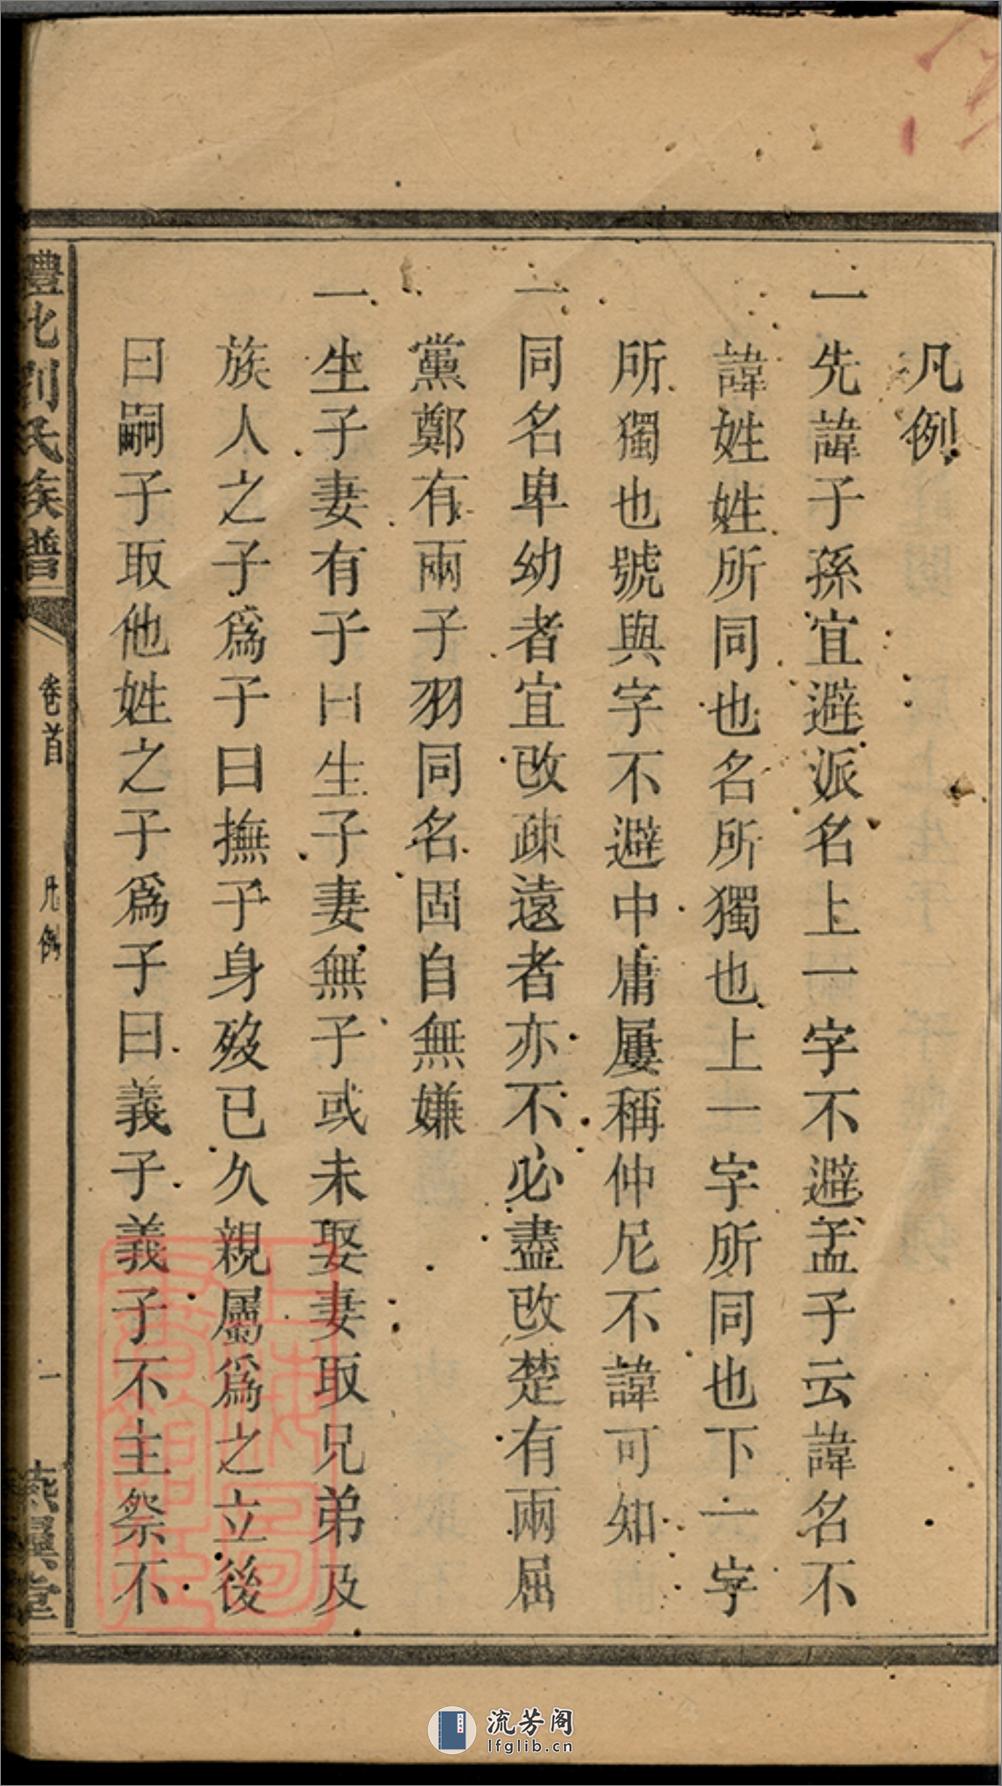 凡例
一先諱子孫宜避派名上一字不避孟子云諱名不
諱姓姓所同也名所獨也上一字所同也下一字
所獨也號與字不避中庸屢稱仲尼不諱可知
一同名卑幼者宜改疎遠者亦不必盡改楚有兩屈
黨鄭有兩子羽同名固自無嫌
一生子妻有子曰生子妻無子或未娶妻取兄弟及
族人之子爲子曰撫子身歿已久親屬爲之立後
曰嗣子取他姓之子爲子曰義子義子不主祭不
豐北劉氏族譜
卷首
凡例
一
燕翼堂
流芳阁
lfglib.cn